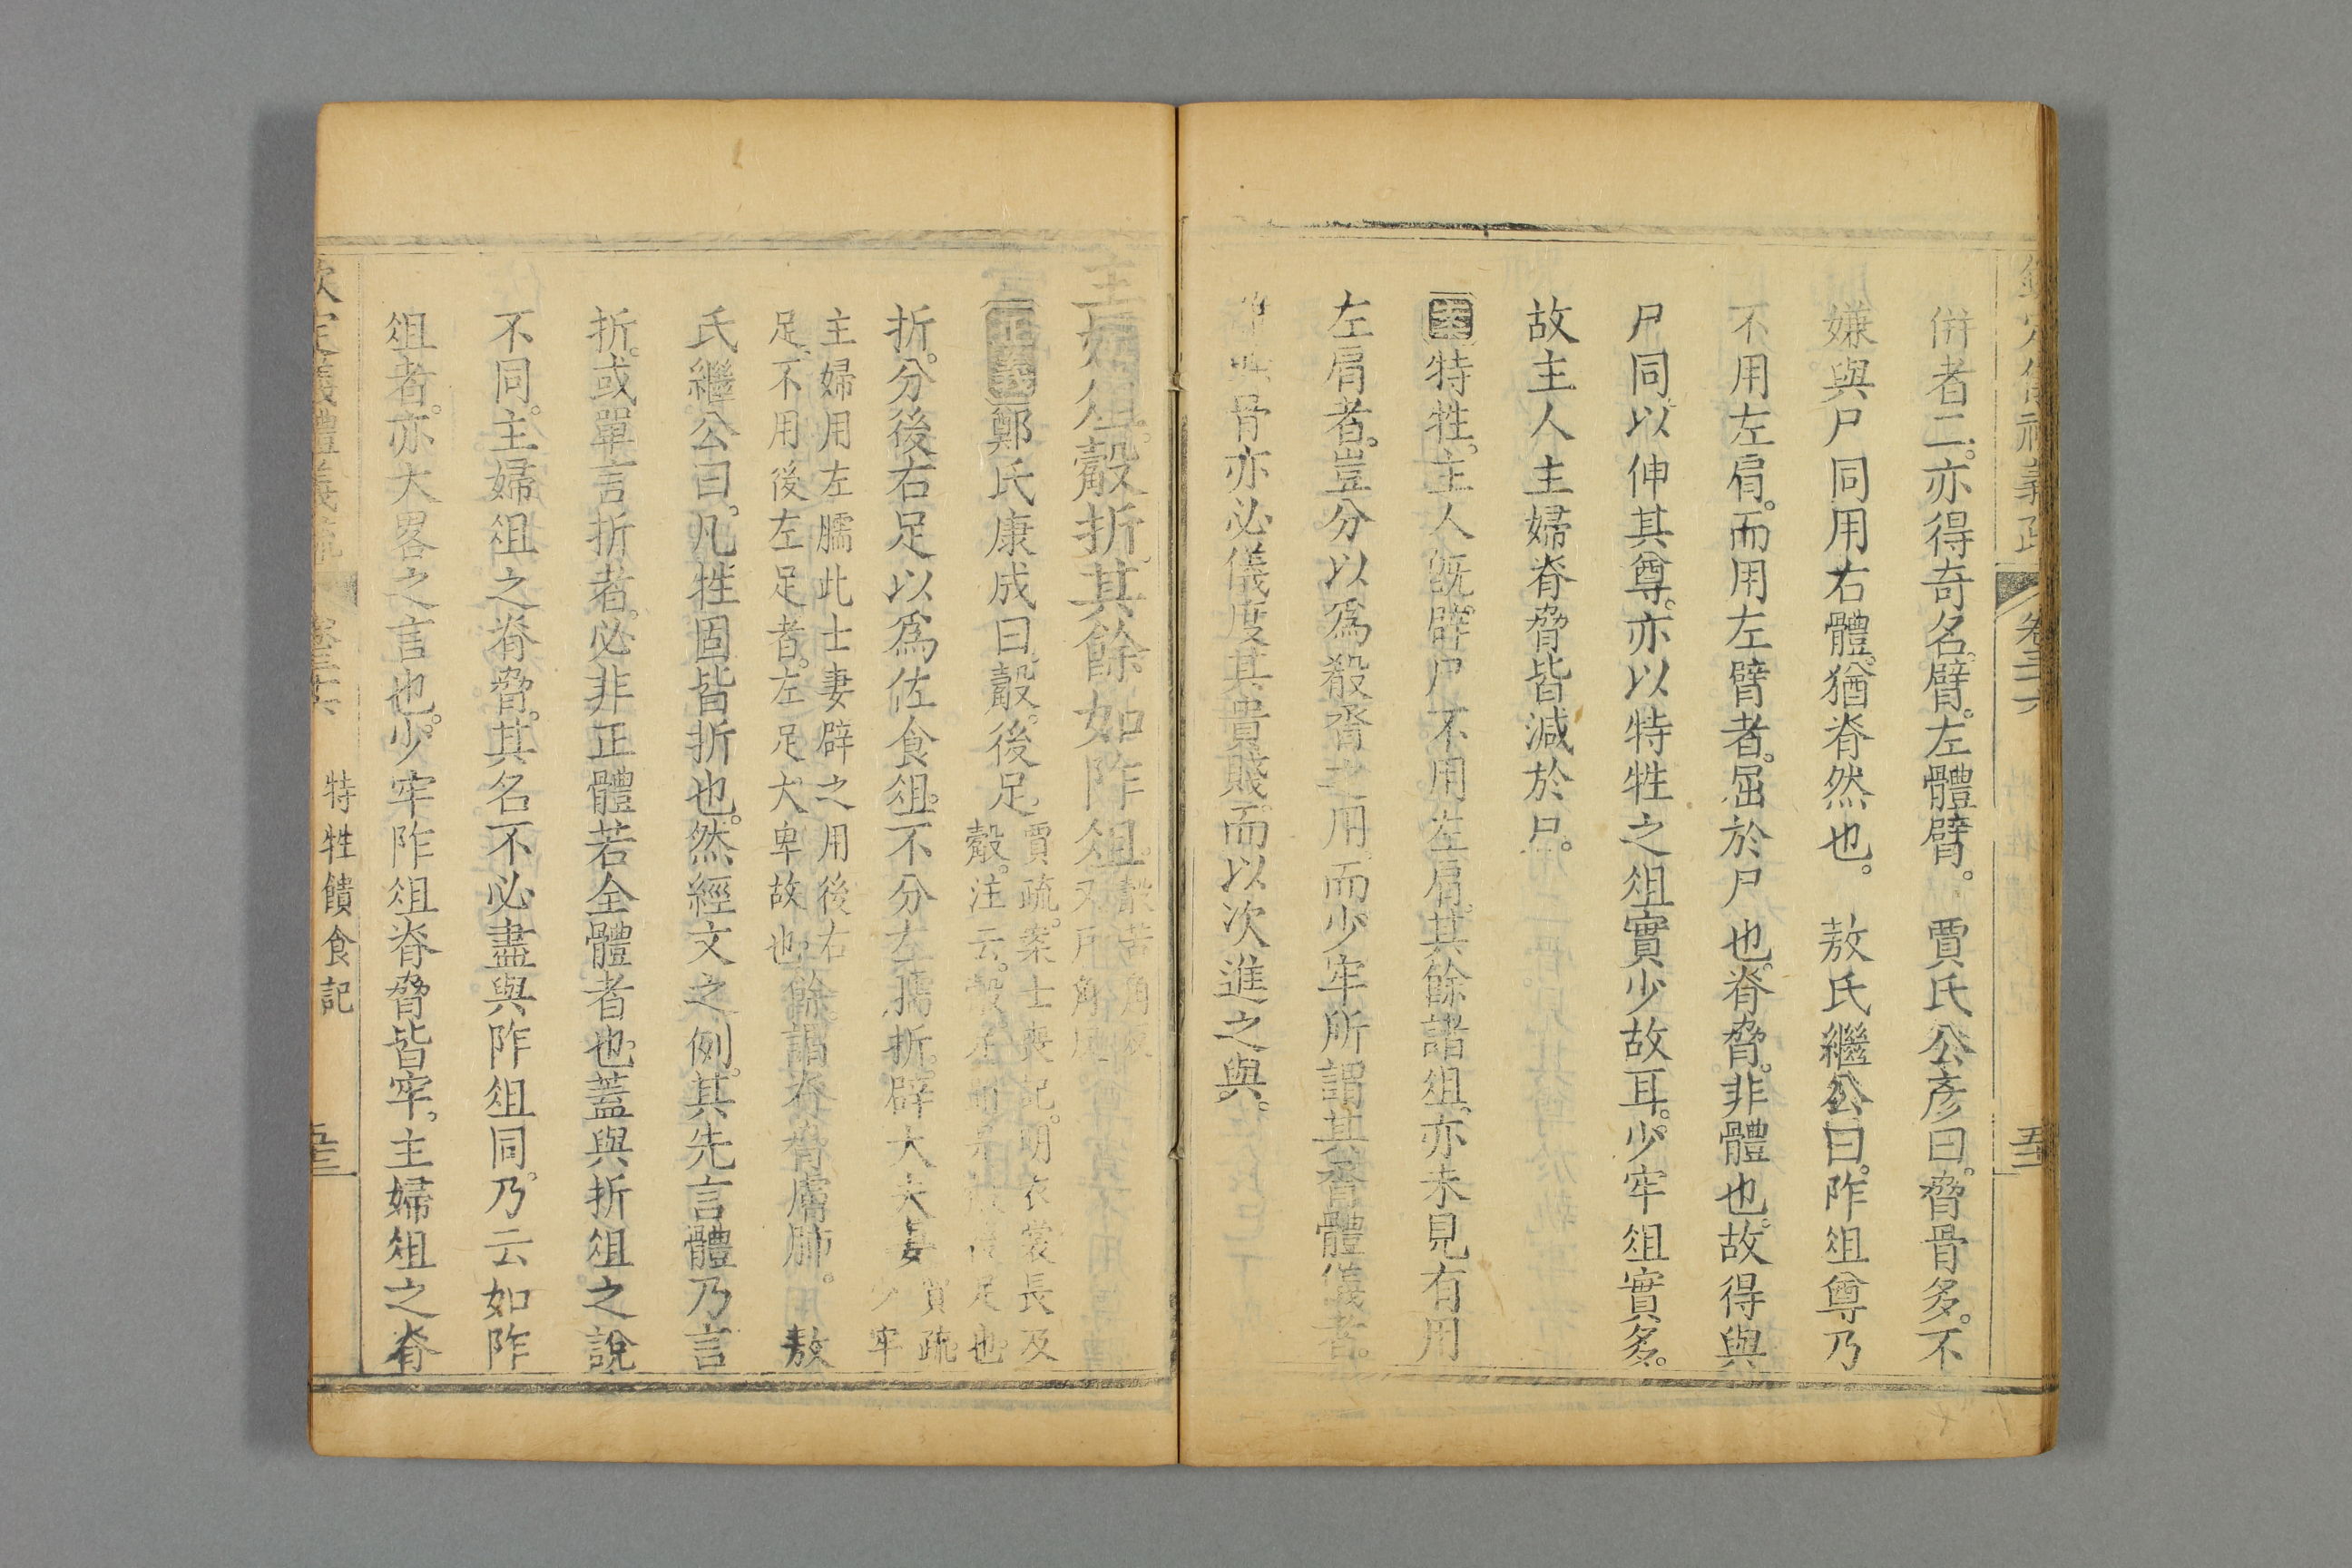 卷三十六
併者二。亦得奇名。臂。左體臂。　賈氏公彥曰。脅骨多。不
嫌與尸同用右體。猶脊然也。　敖氏繼公曰。阼俎尊。乃
不用左肩。而用左臂者。屈於尸也。脊脅。非體也。故得與
尸同。以伸其尊。亦以特牲之俎實少故耳。少牢俎實多。
故主人主婦脊脅皆減於尸。
案特牲。主人旣辟尸不用左肩。其餘諸俎。亦未見有用
左肩者。豈分以爲殽脀之用。而少牢所謂其脀體儀者。
骨亦必儀度其貴賤。而以次進之與。
主婦俎。觳折。其餘如阼俎。
正義鄭氏康成曰。觳。後足。
賈疏。案士喪記。明衣裳長及
觳。注云。觳足
後足也。
折。分後右足以爲佐食俎。不分左臑折。辟大夫妻。
賈疏。
少牢
主婦用左臑此士妻辟之用後右
足。不用後左足者。左足大卑故也。
餘。謂脊脅膚肺。　敖
氏繼公曰。凡牲固皆折也。然經文之例。其先言體乃言
折。或單言折者。必非正體若全體者也。蓋與折俎之說
不同。主婦俎之脊脅。其名不必盡與阼俎同。乃云如阼
俎者。亦大畧之言也。少牢阼俎脊脅皆牢。主婦俎之脊
欽定儀禮義疏
卷三十六
特牲饋食記
五三